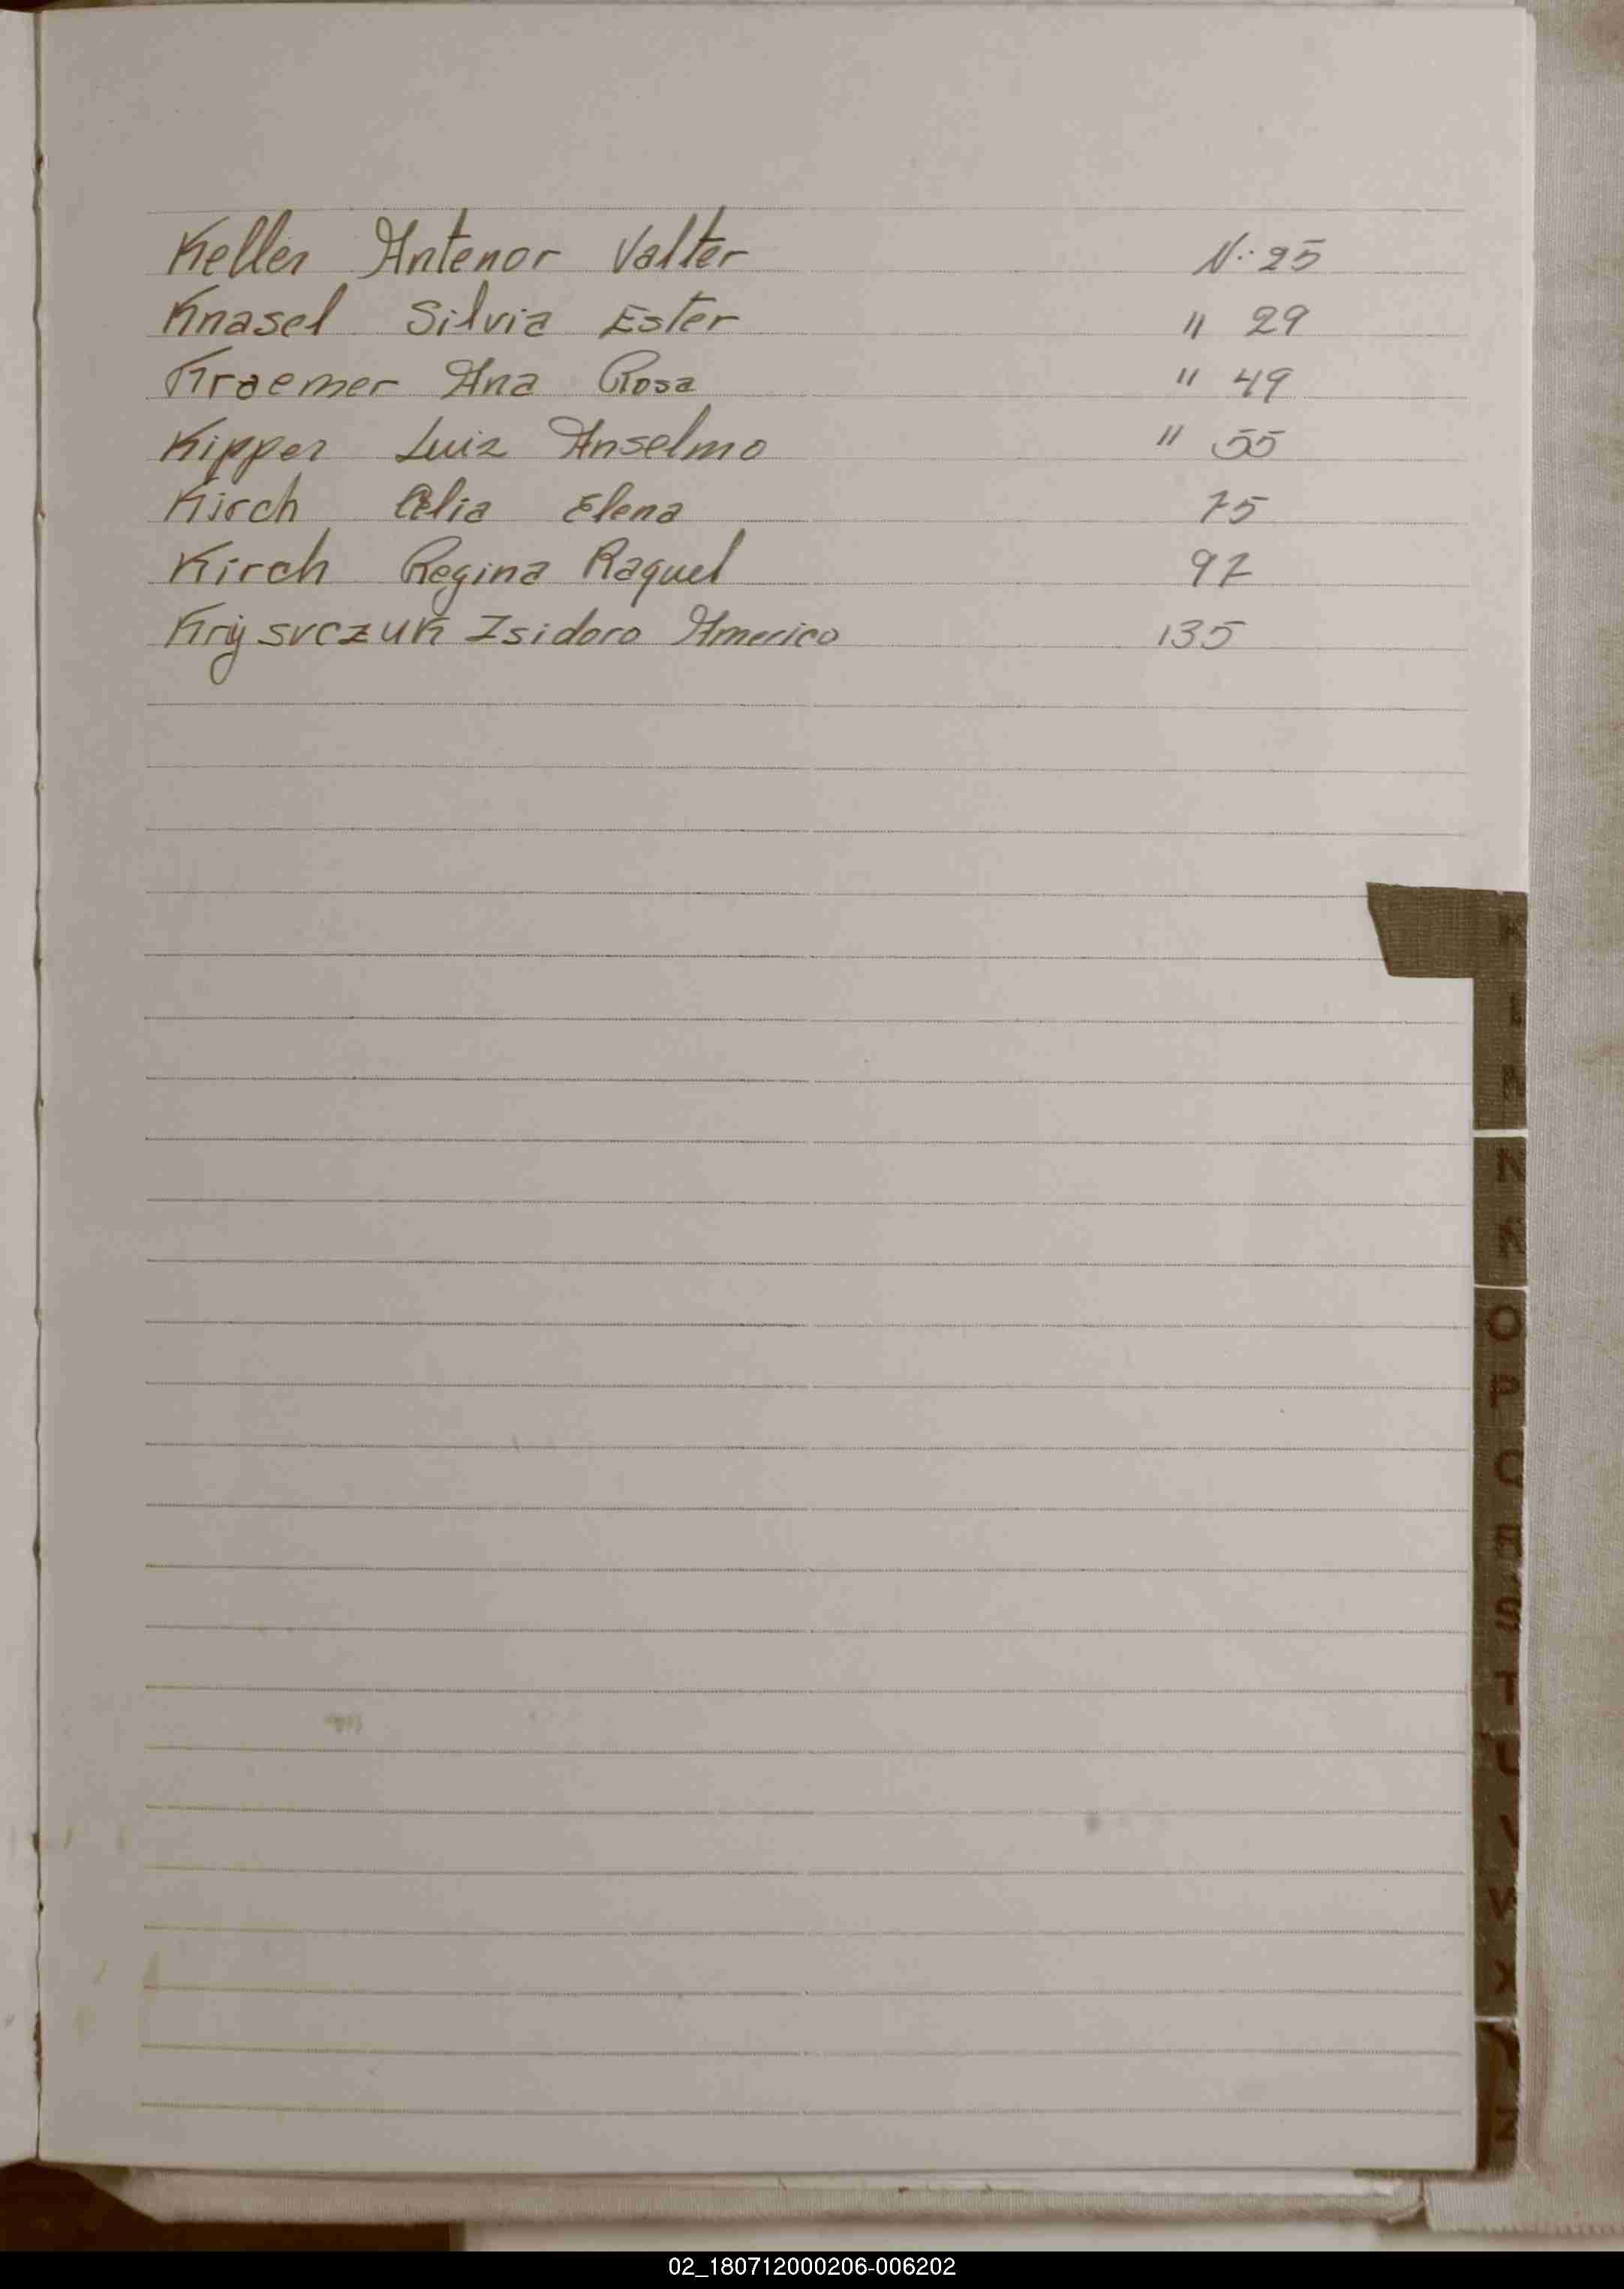 Keller Antenor Valter N: 25
Knasel Silvia Ester " 29
Kraemer Ana Rosa " 49
Kipper Luiz Anselmo " 55
Kirch Celia Elena 75
Kirch Regina Raquel 97
Krysvczuk Isidoro Americo 135
K
L
M
N
Ñ
O
P
Q
R
S
T
U
V
W
X
Y
Z
02_180712000206-006202